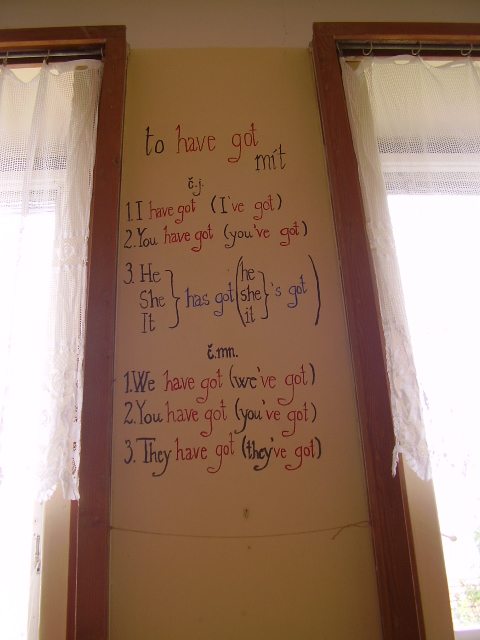 to have got
mít
č.j.
1. I have got (I've got)
2. You have got (you've got)
3. He
She
It
} has got
(he
she
it
}'s got)
č.mn.
1. We have got (we've got)
2. You have got (you've got)
3. They have got (they've got)